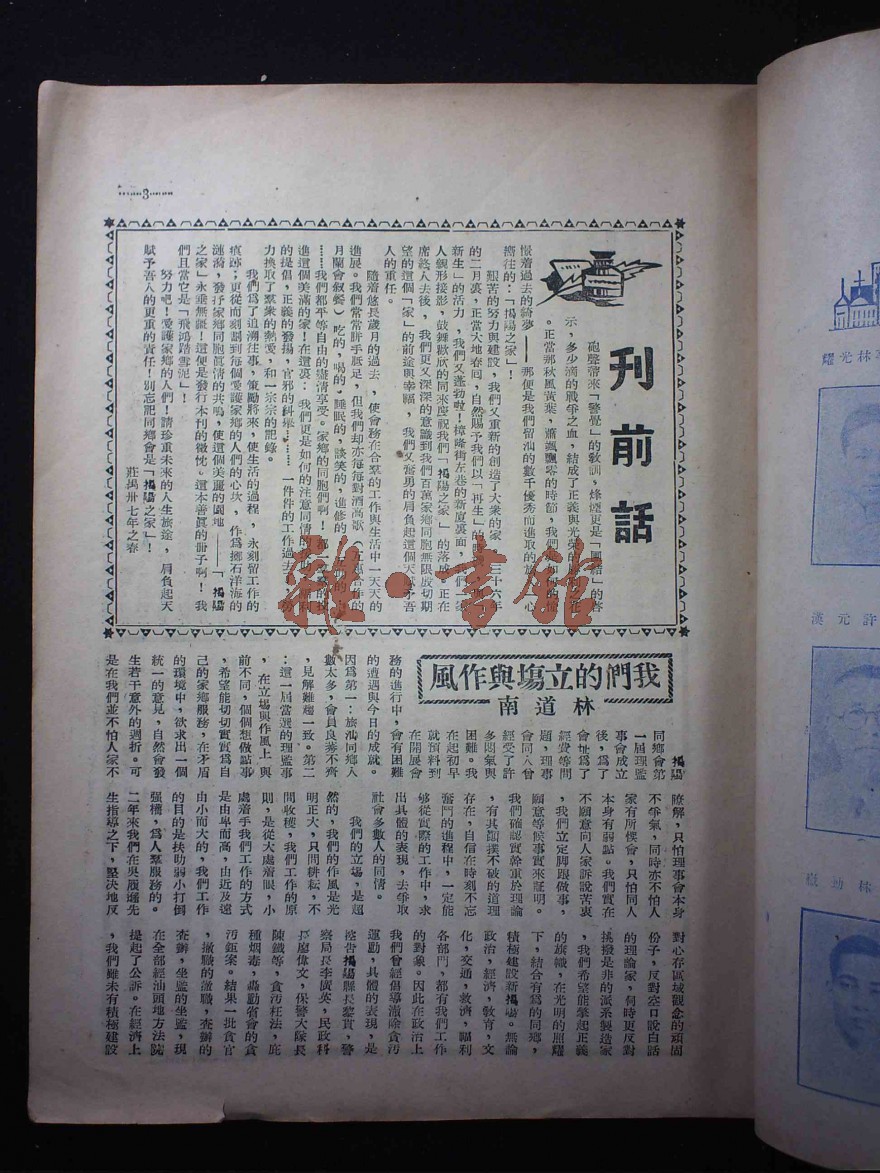 3
刊前話
砲聲帶來「警覺」的教訓，烽煙更是「團結」的啓
示，多少滴的戰爭之血，結成了正義與光榮的勝利之
。正當那秋風黃葉，蕭颯飄零的時節，我們是如何的憧
憬着過去的綺夢——那便是我們留汕的數千優秀而進取的 心
嚮往的：「揭陽之家」！
艱苦的努力與建設，我們又重新的創造了大衆的家，三十六年
的二月裏，正當大地春囘，自然賜予我們以「再生」的
新生」的活力，我們又蓬勃啦！樟隆街左巷的新廈裏面，我們一家
人親形接影，鼓舞歡欣的同來慶祝我們「揭陽之家」的落成。正在
席終人去後，我們更又深深的意識到我們百萬家鄉同胞無限底切期
望的這個「家」的前途與幸福，我們又奮勇的肩負起這個天賦予吾
人的重任。
隨着悠長歲月的過去，使會務在合羣的工作與生活中一天天的
進展。我們常常胼手胝足，但我們却亦每每對酒高歌（互慰合作的
月蘭會叙餐）吃的，喝的，睡眠的，談笑的，進修的，互助的，
……我們都平等自由的盡情享受。家鄉的同胞們啊！都一
進這個美滿的家！在這裏：我們更是如何的注意同情的 福利
的提倡，正義的發揚，官邪的糾舉……，一件件的工作過去，勞
力換取了羣衆的熱愛，和一宗宗的記錄。
我們爲了追溯往事，策勵將來，使生活的過程，永刻留工作的
痕跡；更從而刻劃到每個愛護家鄉的人們的心坎，作爲擲石汪洋的
漣漪，發抒家鄉同胞眞情的共鳴，使這個美麗的園地——「揭陽
之家」永垂無疆！這便是發行本刊的微忱。這本善眞的冊子啊！我
們且當它是「飛鴻踏雪泥」！
努力吧！愛護家鄉的人們！請珍重未來的人生旅途，肩負起天
賦予吾人的更重的責任！別忘記同鄉會是「揭陽之家」！
莊 卅七年之春
我們的立塲與作風
林道南
揭陽
同鄉會第
一屆理監
事會成立
後，爲了
會址爲了
經費等問
題，理事
會同人曾
經受了許
多悶氣與
困難。我
在起初早
就預料到
在開展會
務的進行中，會有困難
的遭遇與今日的成就。
因爲第一：旅汕同鄉人
數太多，會員良莠不齊
，見解難趨一致。第二
：這一屆當選的理監事
，在立塲與作風上，與
前不同，個個想做點事
，希望能切切實實爲自
己的家鄉服務，在矛盾
的環境中，欲求出一個
統一的意見，自然會發
生若干意外的週折。可
是在我們並不怕人家不
瞭解，只怕理事會本身
不爭氣，同時亦不怕人
家有所悞會，只怕同人
本身有弱點。我們實在
不願意向人家訴說苦衷
，我們立定脚跟做事，
願意等候事實來証明。
我們確認實幹重於理論
，有其顚撲不破的道理
存在，自信在時刻不忘
奮鬥的進程中，一定能
够從實際的工作中，求
出具體的表現，去爭取
社會多數人的同情。
我們的立塲，是超
然的，我們的作風是光
明正大，只問耕耘，不
問收穫，我們工作的原
則，是從大處着眼，小
處着手我們工作的方式
是由卑而高，由近及遠
由小而大的，我們工作
的目的是扶助弱小打倒
强權，爲人羣服務的。
二年來我們在吳履遜先
生指導之下，堅决地反
對心存區域觀念的頑固
份子，反對空口說白話
的理論家，同時更反對
挑撥是非的派系製造家
，我們希望能擎起正義
的旗幟，在光明的照耀
下，結合有爲的同鄉，
積極建設新揭陽。無論
政治，經濟，敎育，文
化，交通，救濟，福利
各部門，都有我們工作
的對象。因此在政治上
我們曾經倡導澈除貪汚
運動，具體的表現，是
控告揭陽縣長黎貫，警
察局長李廣英，民政科
長廖偉文，保警大隊長
陳鐵等，貪汚枉法，庇
種烟毒，轟動省會的貪
汚鉅案。結果一批貪官
，撤職的撤職，查辦的
查辦，坐監的坐監，現
在全部經汕頭地方法院
提起了公訴。在經濟上
，我們雖未有積極建設
林光耀
許元漢
林
雜·書館